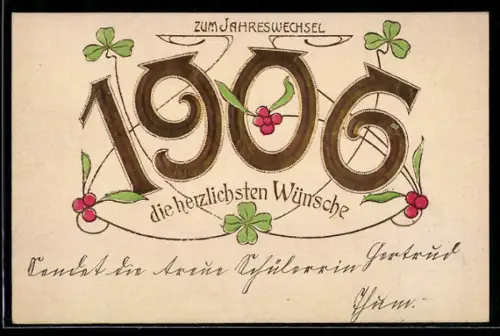 ZUM JAHRESWECHSEL
1906
die herzlichsten Wünsche
Sendet die treue Schülerrin Gertrud
Thum.